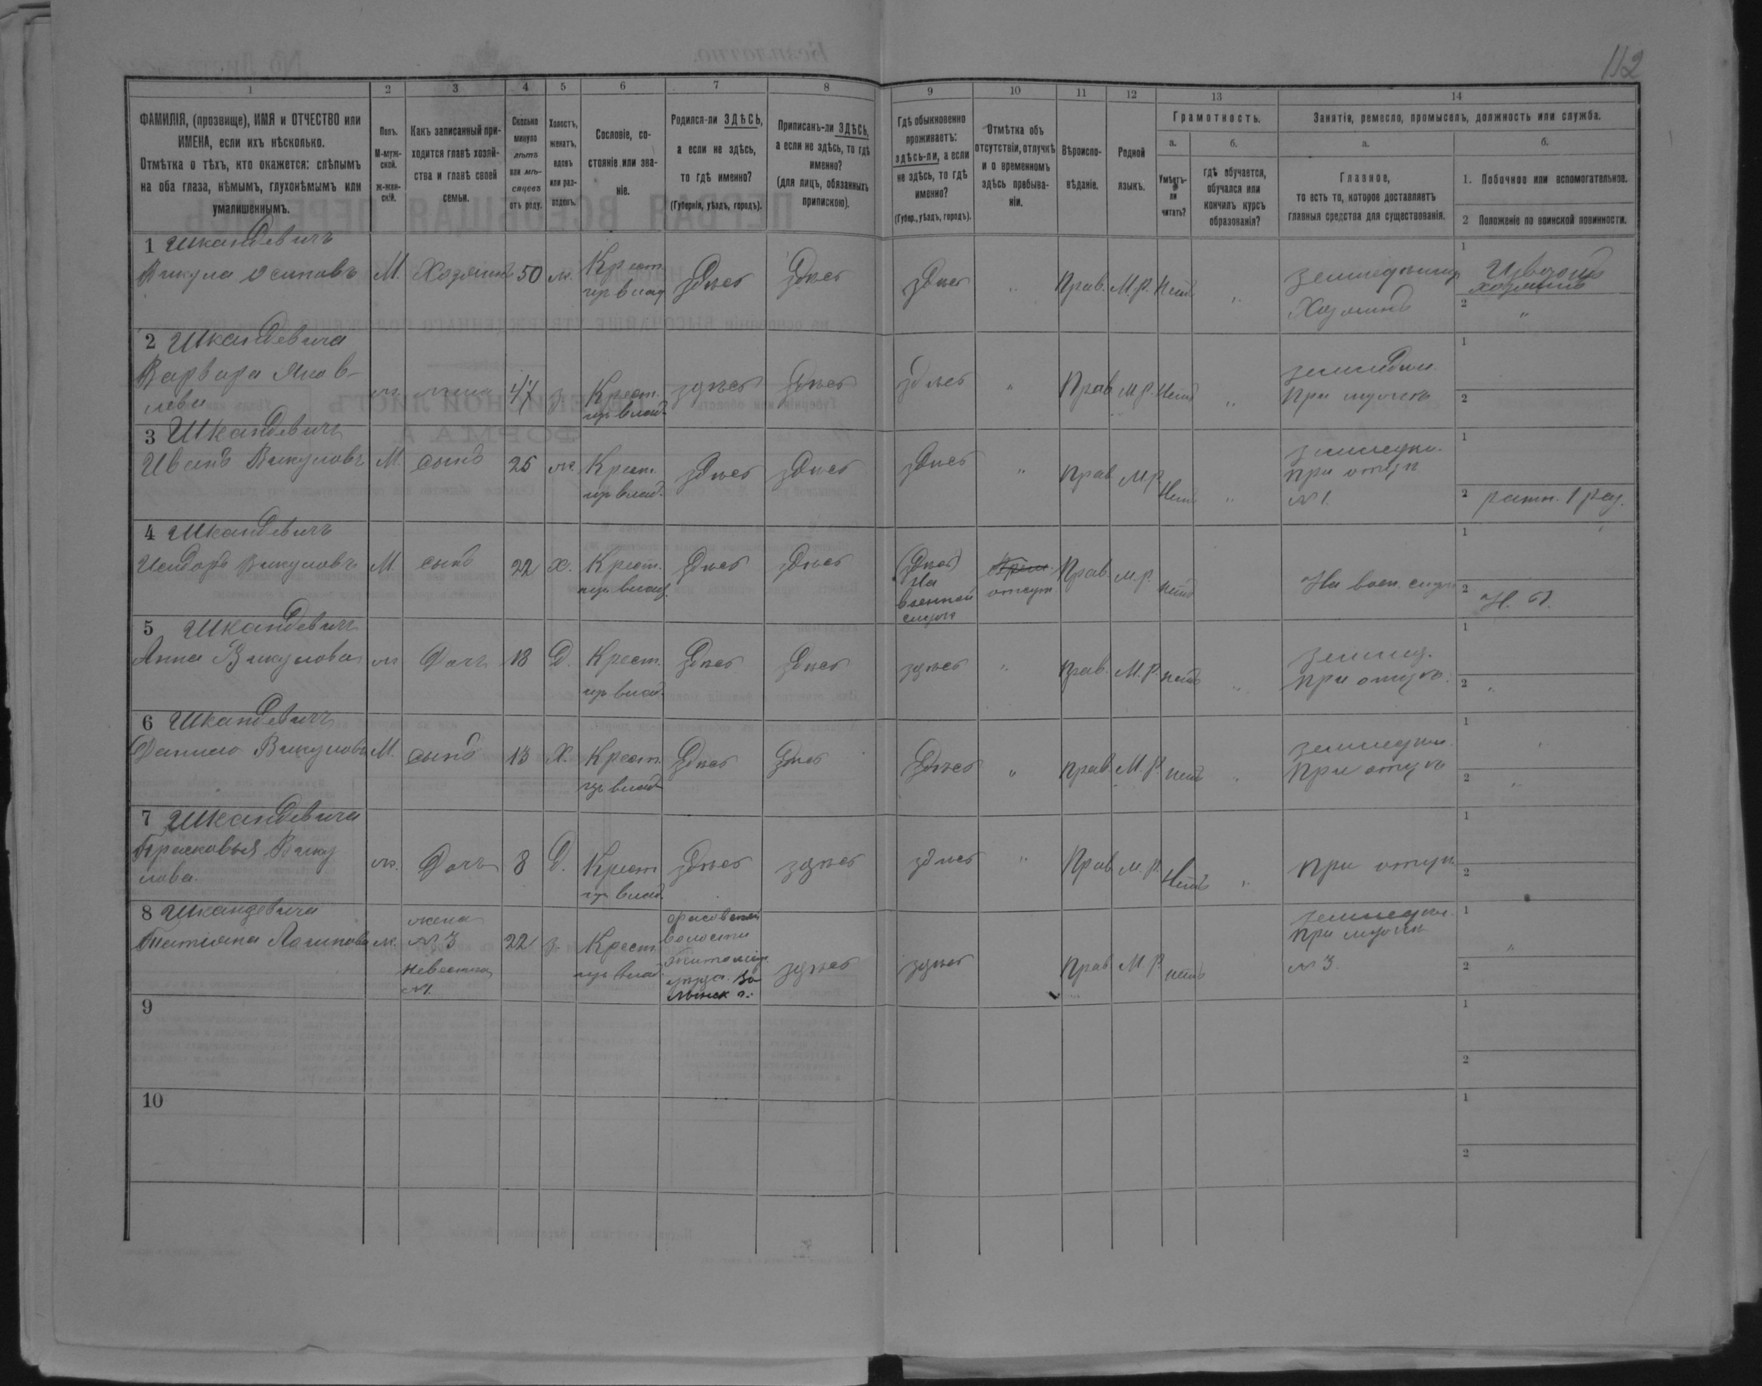 112
1 2 3 4 5 6 7 8 9 10 11 12 13 14
ФАМИЛІЯ, (прозвище), ИМЯ и ОТЧЕСТВО или
ИМЕНА, если ихъ нѣсколько.
Отмѣтка о тѣхъ, кто окажется: слѣпымъ
на оба глаза, нѣмымъ, глухонѣмымъ или
умалишеннымъ.
Полъ.
М-муж-
ской.
ж-жен-
скій.
Какъ записанный при-
ходится главѣ хозяй-
ства и главѣ своей
семьи.
Сколько
минуло
лѣтъ
или мѣ-
сяцевъ
отъ роду.
Холостъ,
женатъ,
вдовъ
или раз-
веденъ.
Сословіе, со-
стояніе или зва-
ніе.
Родился-ли ЗДѢСЬ,
а если не здѣсь,
то гдѣ именно?
(Губернія, уѣздъ, городъ).
Приписанъ-ли ЗДѢСЬ,
а если не здѣсь, то гдѣ
именно?
(для лицъ, обязанныхъ
припискою).
Гдѣ обыкновенно
проживаетъ:
здѣсь-ли, а если
не здѣсь, то гдѣ
именно?
(Губер., уѣздъ, городъ).
Отмѣтка объ
отсутствіи, отлучкѣ
и о временномъ
здѣсь пребыва-
ніи.
Вѣроиспо-
вѣданіе.
Родной
языкъ.
Грамотность.
а.
Умѣетъ-
ли
читать?
б.
гдѣ обучается,
обучался или
кончилъ курсъ
образованія?
Занятія, ремесло, промыселъ, должность или служба.
а.
Главное,
то есть то, которое доставляетъ
главныя средства для существованія.
б.
1. Побочное или вспомогательное.
2 Положеніе по воинской повинности.
1 Шкандевичъ
Викула Осиповъ М. Хозяинъ 50 ж. Крест. здѣсь здѣсь здѣсь " Прав. М.р. Нѣтъ " Хозяинъ
из влад.
1
2 "
2 Шкандевича
Варвара Яков-
лева ж жена 47 з. Крест. здѣсь здѣсь здѣсь " Прав М.р. Нѣтъ " При мужѣ
1
2
3 Шкандевичъ
Иванъ Викуловъ М. сынъ 25 ж Крест. здѣсь здѣсь здѣсь " Прав М.р. Нѣтъ " при отцѣ
№1.
1
2 ратн. 1 раз.
4 Шкандевичъ
Исидоръ Викуловъ М. сынъ 22 х. Крест. здѣсь здѣсь (здѣсь) Прав. М.р. нѣтъ На воен. служ
На
военной
службѣ
отсут
1
2 Н. П.
5 Шкандевичъ
Анна Викулова ж дочь 18 Д. Крест. здѣсь здѣсь здѣсь " Прав. М.р. нѣтъ " при отцѣ
1
2 "
6 Шкандевичъ
Данило Викуловъ М. сынъ 13 Х. Крест. здѣсь здѣсь здѣсь " Прав М.р. нѣтъ " При отцѣ
1
2 "
7 Шкандевича
Прасковья Вику
лова ж. дочь 8 Д. Крест здѣсь здѣсь здѣсь " Прав М.р. Нѣтъ " при отцѣ
1
2
8 Шкандевича
Татіяна ж. жена
№ 3
невестка
№1. 22 з. Крест. волости здѣсь здѣсь Прав М.р. нѣтъ при мужѣ
№ 3.
1 "
2
9
1
2
10
1
2